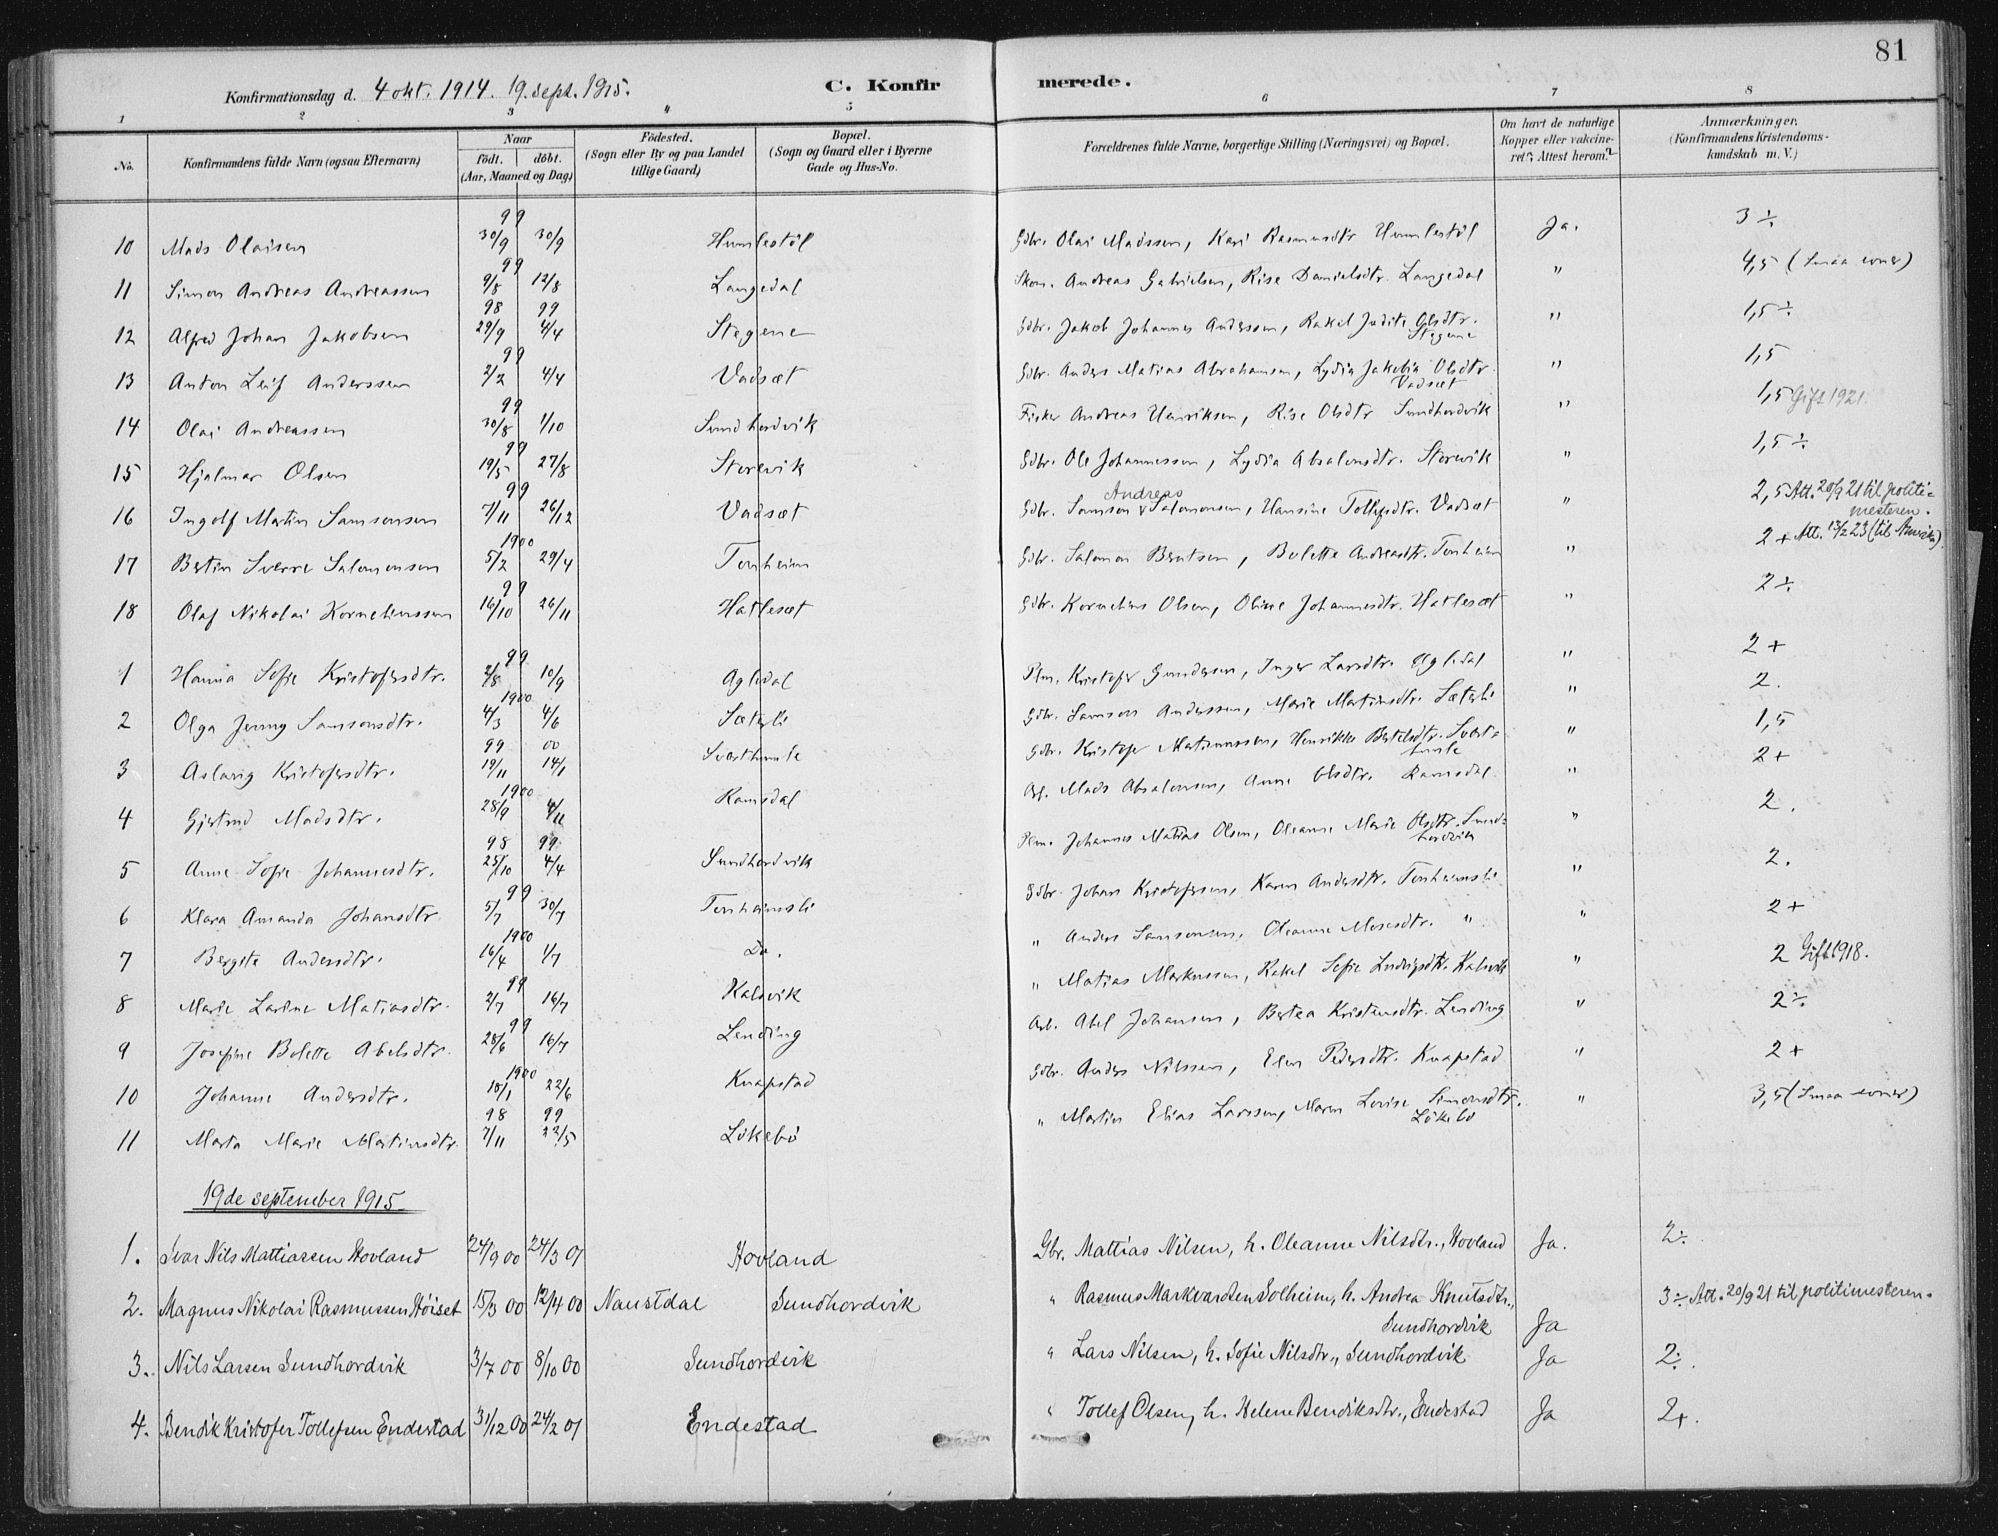 81
Konfirmationsdag d. 4 okt. 1914. 19. sept. 1915. C. Konfirmerede.
1 2 3 " 5 6 7 8
No. Konfirmandens fulde Navn (ogsaa Efternavn) Naar födt. döbt. (Aar, Maaned og Dag) Födested. (Sogn eller By og paa Landet tillige Gaard) Bopæl. (Sogn og Gaard eller i Byerne Gade og Hus-No. Forældrenes fulde Navne, borgerlige Stilling (Næringsvei) og Bopæl. Om havt de naturlige Kopper eller vakcineret? Attest herom? Anmærkninger. (Konfirmandens Kristendomskundskab m. V.)
10 Mads Olaisen 99 30/9 30/9 Humlestöl Gdbr. Olai Madssen, Kari Rasmusdtr Humlestöl Ja. 3÷
11 Simon Andreas Andreassen 99 9/8 12/8 Langedal Skom. Andreas Gabrielsen, Rise Danielsdtr. Langedal " 4,5 (Smaa evner)
12 Alfred Johan Jakobsen 98 99 29/9 4/4 Stegene Gdbr. Jakob Johannes Anderssen, Rakel Judite Olsdtr. Stegene " 1,5÷
13 Anton Leif Anderssen 99 2/2 4/4 Vadsæt Gdbr. Anders Matias Abrahamsen, Lydia Jakobia Olsdtr. Vadsæt " 1,5
14 Olai Andreassen 99 30/8 1/10 Sundhordvik Fisker Andreas Henriksen, Rise Olsdtr Sundhordvik " 1,5 Gift 1921.
15 Hjalmar Olsen 99 19/5 27/8 Storevik Gdbr. Ole Johannessen, Lydia Absalonsdtr. Storevik " 1,5÷
16 Ingolf Martin Samsonsen 99 7/11 26/12 Vadsæt Gdbr. Samson Andreas Salomonsen, Hansine Tollefsdtr. Vadsæt " 2,5 Att. 20/9 21 til politimesteren.
17 Bertin Sverre Salomonsen 1900 5/2 29/4 Tonheim Gdbr. Salomon Berntsen, Bolette Andreasdtr. Tonheim " 2+ Att. 13/2 23 (til Amerika).
18 Olaf Nikolai Korneliussen 99 16/10 26/11 Hatleset Gdbr. Kornelius Olsen, Oline Johannesdtr. Hatleset " 2÷
1 Hanna Sofie Kristofersdtr. 99 2/8 10/9 Agledal Plm. Kristofer Gundersen, Inger Larsdtr. Agledal " 2+
2 Olga Jenny Samsonsdtr. 1900 4/3 4/6 Sæterli Gdbr. Samson Anderssen, Marie Martinsdtr. Sæterli " 2.
3 Aslaug Kristofersdtr. 99 00 19/11 14/1 Svarthumle Gdbr. Kristofer Matiassen, Henrikke Bertelsdtr. Svarthumle " 1,5
4 Gjertrud Madsdtr. 1900 28/9 4/11 Ramsdal Arb. Mads Absalonsen, Anne Olsdtr. Ramsdal. " 2+
5 Anne Sofie Johannesdtr. 98 99 25/10 4/4 Sundhordvik Plm. Johannes Matias Olsen, Oleanne Marie Olsdtr. Sundhordvik " 2.
6 Klara Amanda Johansdtr. 99 5/7 30/7 Tonheimsli Gdbr. Johan Kristofersen, Karen Andersdtr. Tonheimsli " 2.
7 Bergite Andersdtr. 1900 16/4 1/7 Do. " Anders Samsonsen, Oleanne Mosesdtr. " " 2+
8 Marie Larine Matiasdtr. 99 2/7 16/7 Kalsvik " Matias Markussen, Rakel Sofie Ludvigsdtr. Kalsvik " 2 Gift 1918.
9 Josefine Bolette Abelsdtr. 99 28/6 16/7 Lending Arb. Abel Johansen, Bertea Kristensdtr. Lending " 2÷
10 Johanne Andersdtr. 1900 18/1 22/6 Knapstad Gdbr. Anders Nilssen, Elen Pedersdtr. Knapstad " 2+
11 Marta Marie Martinsdtr. 98 99 7/11 22/5 Lökebö " Martin Elias Larssen, Maren Lovise Simonsdtr. Lökebö " 3,5 (Smaa evner)
19de september 1915
1. Ivar Nils Mattiassen Hovland 24/9 00 24/3 01 Hovland Gbr. Mattias Nilsen, h. Oleanne Nilsdtr., Hovland Ja. 2÷.
2. Magnus Nikolai Rasmussen Höiset 15/3 00 12/4 00 Naustdal Sundhordvik " Rasmus Markvardsen Solheim, h. Andrea Knutsdtr., Sundhordvik Ja 3÷ Att. 20/9 21 til politimesteren.
3. Nils Larsen Sundhordvik 3/7 00 8/10 00 Sundhordvik " Lars Nilsen, h. Sofie Nilsdtr., Sundhordvik Ja 2÷.
4. Bendik Kristofer Tollefsen Endestad 31/12 00 24/2 01 Endestad " Tollef Olsen, h. Helene Bendiksdtr., Endestad Ja 2+.